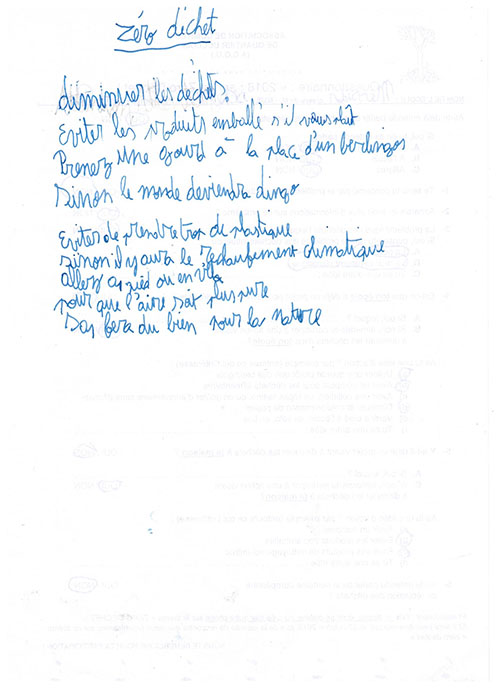 zéro déchet
diminuer les déchets.
Eviter les produits emballé s'il vous plaît
Prenez une gourd à la place d'un berlingos
Sinon le monde deviendra dingo
Eviter de prendre trop de plastique
sinon il y aura le réchaufement climatique
allez a pied ou en vélo
pour que l'aire soit plus pure
Sas fera du bien pour la nature